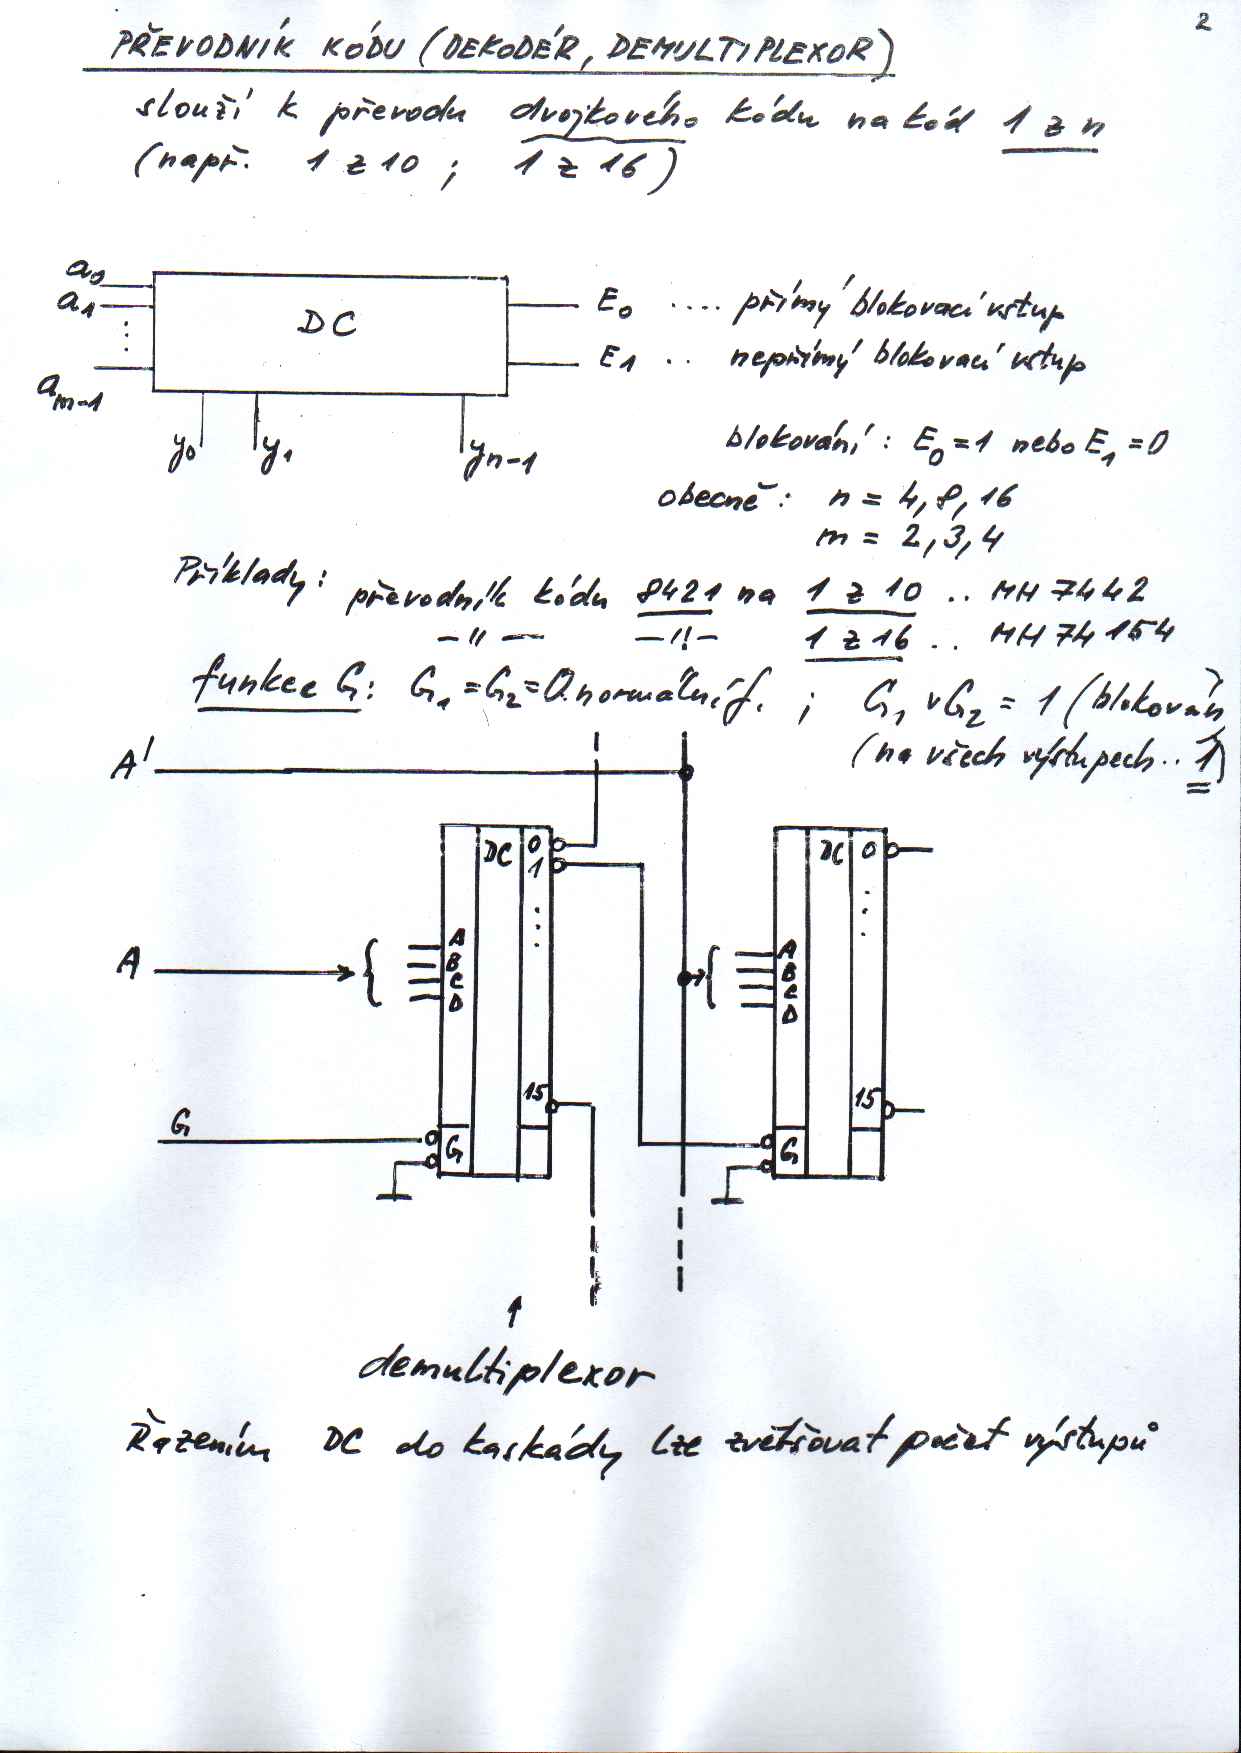 2
PŘEVODNÍK KÓDU (DEKODÉR, DEMULTIPLEXOR)
slouží k převodu dvojkového kódu na kód 1 z n
(např. 1 z 10 ; 1 z 16)
a0
a1
am-1
DC
y0 y1 yn-1
E0 .... přímý blokovací vstup
E1 .. nepřímý blokovací vstup
blokování : E0 = 1 nebo E1 = 0
obecně : n = 4, 8, 16
m = 2, 3, 4
Příklady : převodník kódu 8421 na 1 z 10 .. MH 7442
-"- -"- 1 z 16 .. MH 74154
funkce G : G1 = G2 = 0 normální f. ; G1 v G2 = 1 (blokování)
(na všech výstupech .. 1)
A'
DC 0
1
DC 0
A
A
B
C
D
A
B
C
D
15
15
G
G
G
demultiplexor
Řazením DC do kaskády lze zvětšovat počet výstupů